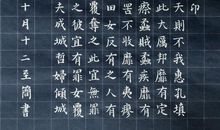 卬
天則不我惠孔填
此大厲邦靡有
瘵蟊賊蟊疾靡有
罟不收靡有夷瘳
田女反有之人有
覆奪之此宜無罪
之彼宜有罪女覆
夫成城哲婦傾城
十月十二至簡書